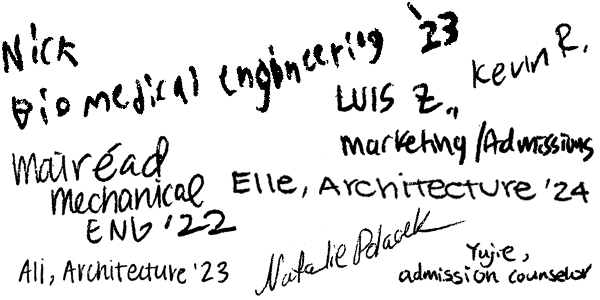 Nick
Biomedical engineering '23
Kevin R.
Luis Z.,
Marketing/Admissions
Mairéad
Mechanical
ENG '22
Elle, Architecture '24
Ali, Architecture '23
Natalie Polacek
Yujie,
admission counselor